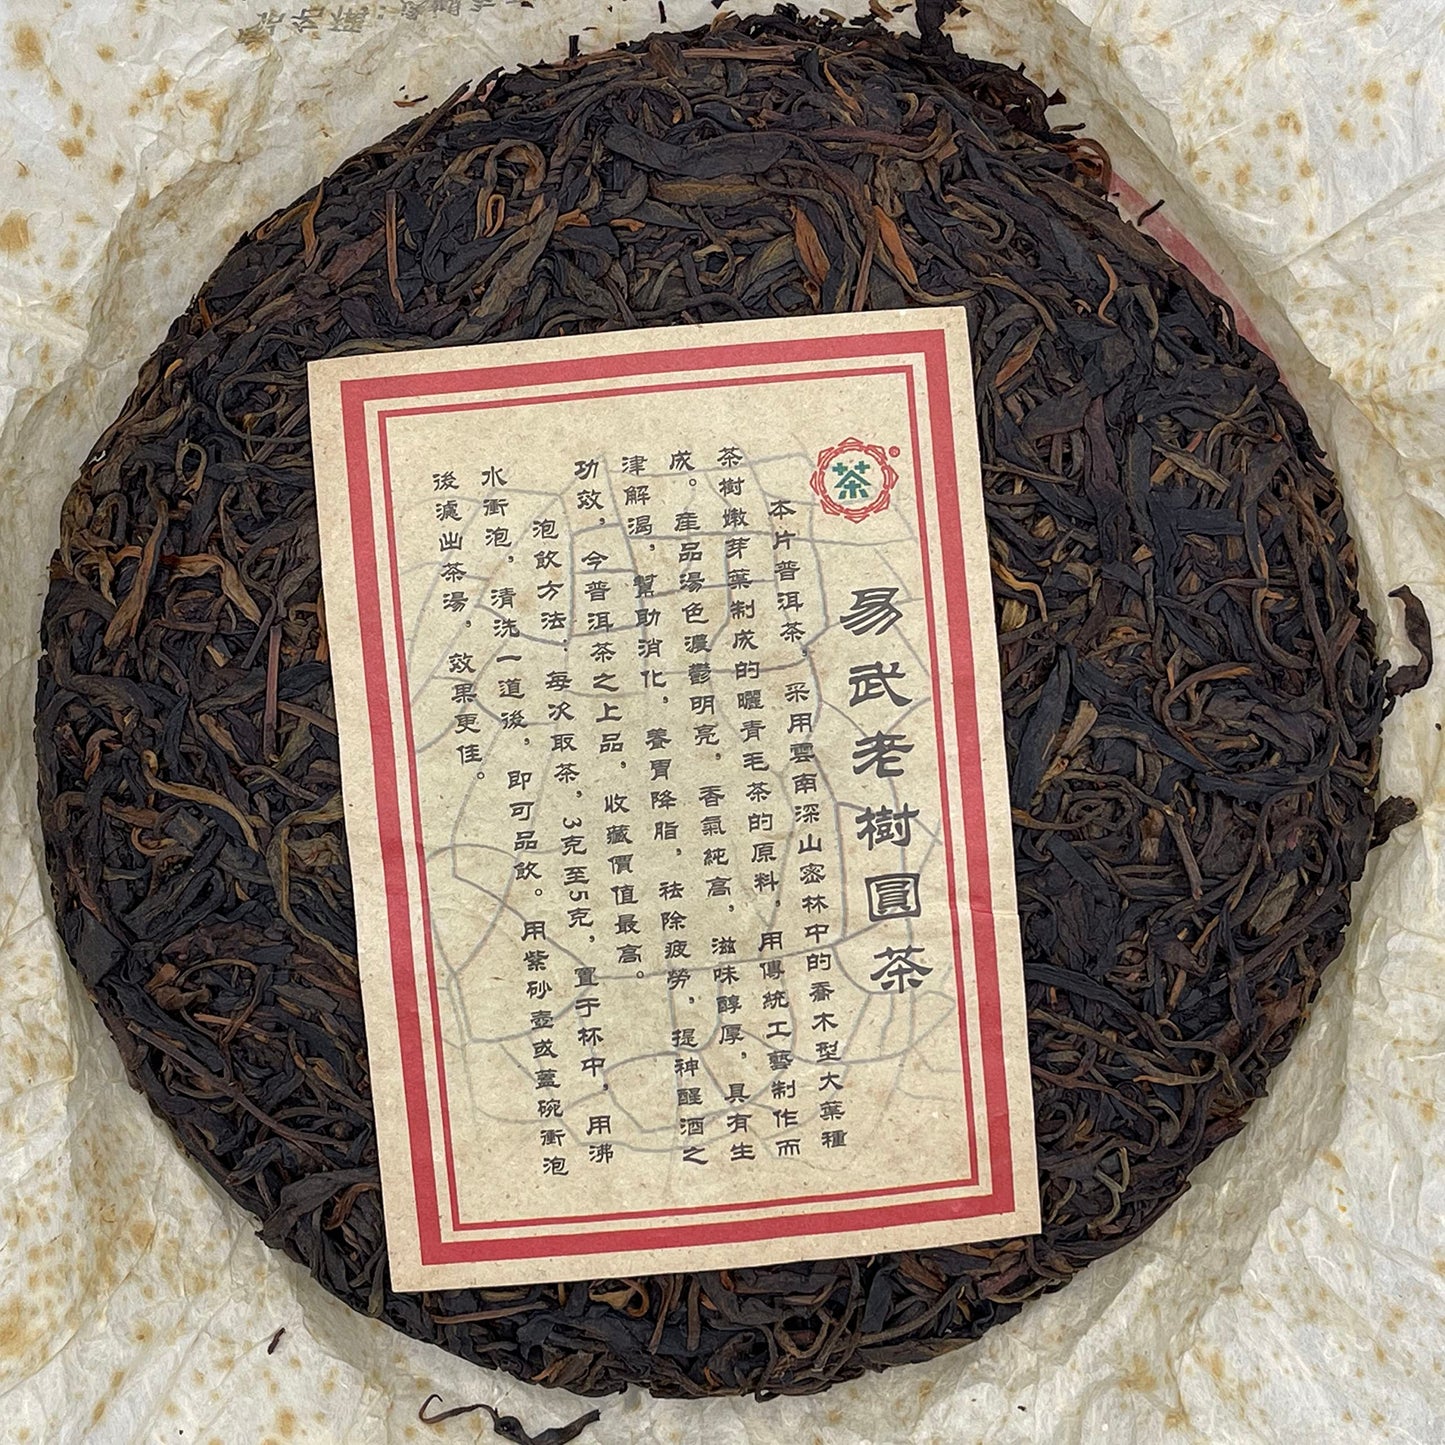 茶
易武老樹圓茶
本片普洱茶，采用雲南深山密林中的喬木型大葉種
茶樹嫩芽葉制成的曬青毛茶的原料，用傳統工藝制作而
成。産品湯色濃鬱明亮，香氣純高，滋味醇厚，具有生
津解渴，幫助消化，養胃降脂，祛除疲勞，提神醒酒之
功效，今普洱茶之上品，收藏價值最高。
泡飲方法：每次取茶，3克至5克，置于杯中，用沸
水衝泡，清洗一道後，即可品飲。用紫砂壺或蓋碗衝泡
後濾出茶湯，效果更佳。